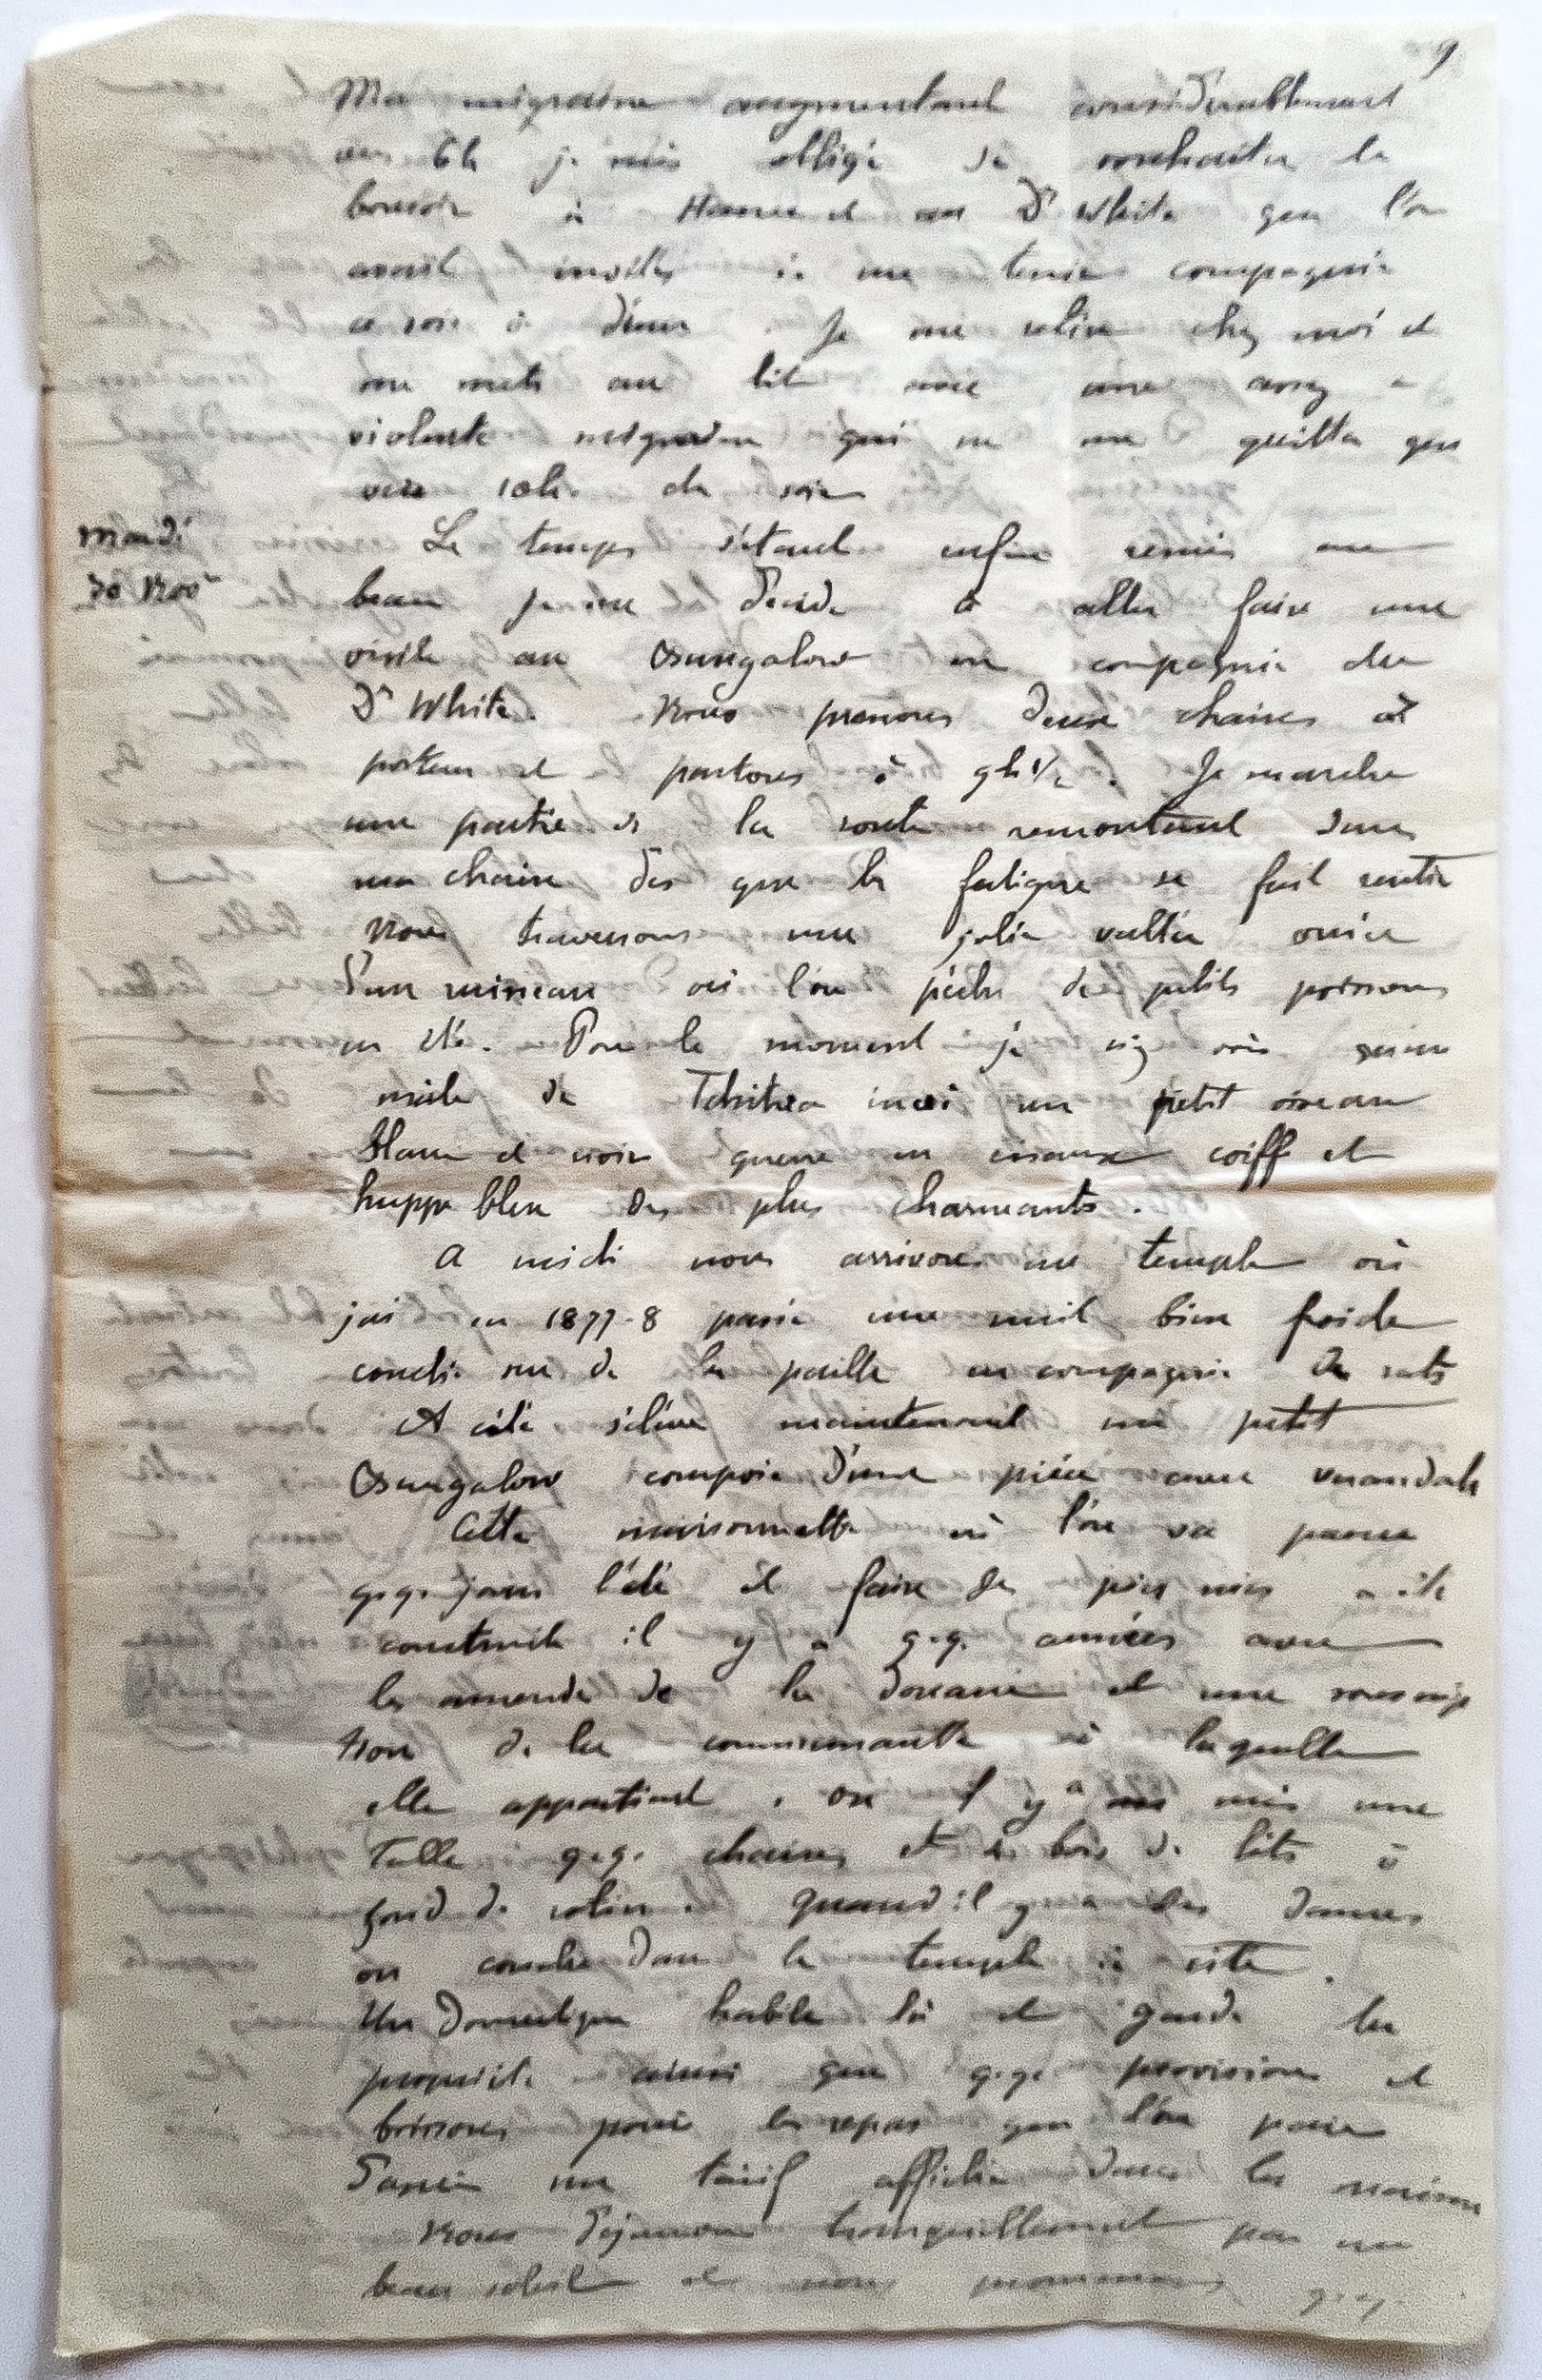 9
Ma migraine augmentant considérablement
vers 6h je suis obligé de souhaiter le
bonsoir à Hanne et au Dr White que l'on
avait invités à me tenir compagnie
ce soir à dîner. Je me retire chez moi et
me mets au lit avec une assez
violente migraine qui ne me quitta que
vers 10h. du soir
mardi
30 Nov
Le temps s'étant enfin remis au
beau je me décide à aller faire une
visite au Bungalow en compagnie du
Dr White. Nous prenons deux chaises à
porteur et partons à 9h 1/2. Je marche
une partie de la route remontant dans
ma chaise dès que la fatigue se fait sentir
Nous traversons une jolie vallée ornée
d'un ruisseau où l'on pêche de petits poissons
en été. Pour le moment je n'y vois qu'un
mâle de Tchitrea un petit oiseau
blanc et noir queue en ciseaux coiffe et
huppe bleu des plus charmants.
A midi nous arrivons au temple où
j'ai en 1877-8 passé une nuit bien froide
couché sur de la paille en compagnie de rats
A côté s'élève maintenant un petit
Bungalow composé d'une pièce avec verandah
Cette maisonnette où l'on va passer
q.q. jours l'été et faire des pics nics a été
construite il y a q.q. années avec
les amendes de la Douane et une souscrip
tion de la communauté à laquelle
elle appartient. On y a mis une
Table q.q. chaises et bois de lits à
fond de rotin. Quand il y a des dames
on couche dans le temple à côté.
Un domestique habite là et garde la
propriété ainsi que q.q. provisions et
boissons pour les repas que l'on paie
d'après un tarif affiché dans la maison
Nous déjeunons tranquillement par un
beau soleil et nous promenons q.q.